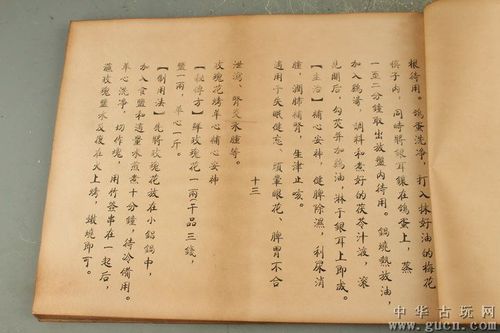 根待用。鴿蛋洗淨，打入抹好油的梅花
模子內，同時將銀耳鑲在鴿蛋上，蒸
一至二分鐘取出放盤內待用。鍋燒熱放油，
加入鷄湯，調料和煮好的茯苓汁液，滚
先開后，勾芡并加鷄油，淋于銀耳上即成。
【主治】補心安神，健脾除濕，利尿消
腫，潤肺補腎，生津止咳。
適用于失眠健忘、頭暈眼花、脾胃不合
十三
泄瀉、腎炎水腫等。
玫瑰花烤羊心補心安神
【秘傳方】鮮玫瑰花一兩(干品三錢，
鹽一兩，羊心一斤。
【制用法】先將玫瑰花放在小鋁鍋中，
加入食鹽和適量水煎煮十分鐘，待冷備用。
羊心洗淨，切作塊，用竹簽串在一起后，
蘸玫瑰鹽水反復在火上烤，嫩燒即可。
中华古玩网
www.gucn.com